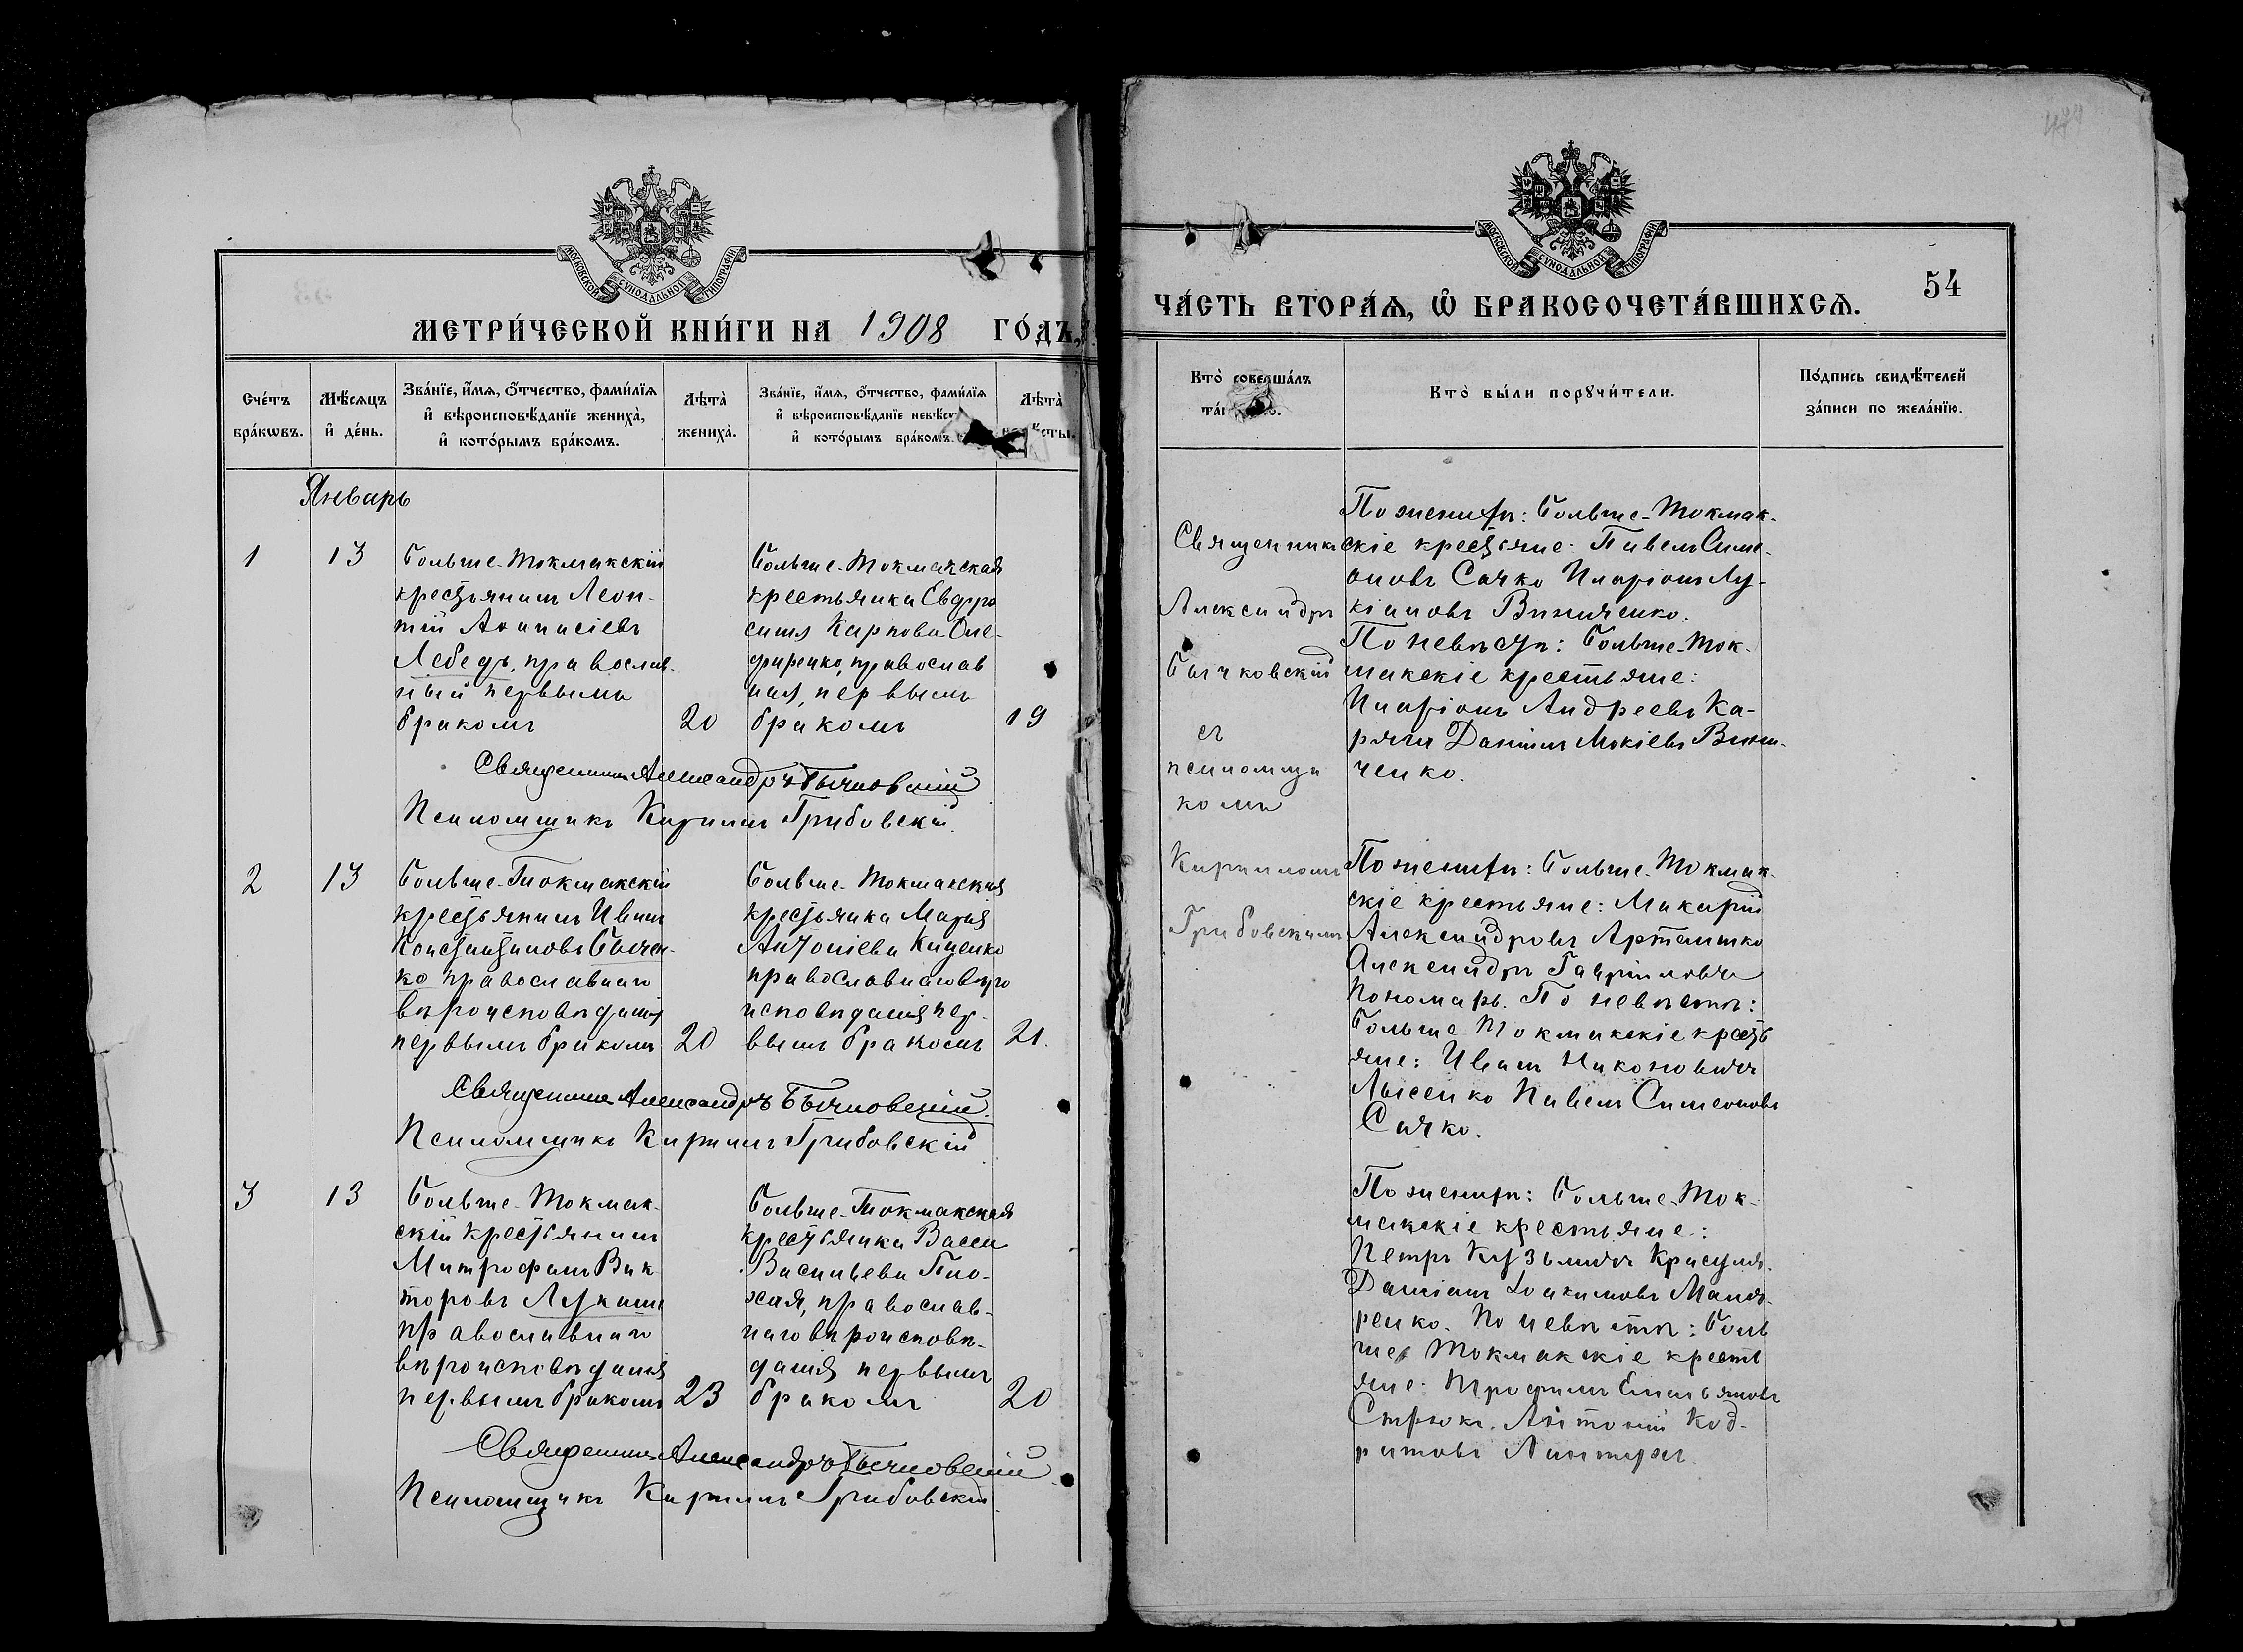 МОСКОВСКОЙ СѴНОДАЛЬНОЙ ТИПОГРАФІИ
МЕТРИ́ЧЕСКОЙ КНИ́ГИ НА 1908 ГО́ДЪ,
Сче́тъ бра́кѡвъ.
Мѣ́сяцъ и҆ де́нь.
Зва́нїе, и҆́мѧ, ѻ҆́тчество, фами́лїѧ
и҆ вѣроисповѣ́данїе жениха̀,
и҆ кото́рымъ бра́комъ.
Лѣта̀ жениха̀.
Зва́нїе, и҆́мѧ, ѻ҆́тчество, фами́лїѧ
и҆ вѣроисповѣ́данїе невѣст
и҆ кото́рымъ бра́комъ.
Лѣта̀
Январь
1
13
Больше-Токмакскій
крестьянинъ Леон-
тій Аѳанасіевъ
Лебедь, православ-
ный первымъ
бракомъ
20
Больше-Токмакская
крестьянка Евфро
синія Карпова Оле-
фиренко, православ
ная, первымъ
бракомъ
19
Священникъ Александръ Бычковскій
Псаломщикъ Кириллъ Грибовскій.
2
13
Больше-Токмакскій
крестьянинъ Иванъ
Константиновъ Бычен-
ко православнаго
вѣроисповѣданія
первымъ бракомъ
20
Больше-Токмакская
крестьянка Марія
Антоніева Куценко
православнаго вѣро
исповѣданія пер-
вымъ бракомъ
21.
Священникъ Александръ Бычковскій.
Псаломщикъ Кириллъ Грибовскій
3
13
Больше-Токмак-
скій крестьянинъ
Митрофанъ Вик
торовъ Лукаш
православнаго
вѣроисповѣданія
первымъ бракомъ
23
Больше-Токмакская
крестьянка Васса
Васильева
православ-
наго вѣроисповѣ-
данія первымъ
бракомъ
20
Священникъ Александръ Бычковскій
Псаломщикъ Кириллъ Грибовскій.
МОСКОВСКОЙ СѴНОДАЛЬНОЙ ТИПОГРАФІИ
54
ЧА́СТЬ ВТОРА́Ѧ, Ѽ БРАКОСОЧЕТА́ВШИХСѦ.
Кто̀ соверша́лъ
Кто̀ бы́ли порꙋчи́тели.
По́дпись свидѣ́телей
за́писи по жела́нїю.
Священникъ
Александръ
Бычковскій
съ
псаломщи
комъ
Кирилломъ
Грибовскимъ
По женихѣ: Больше-Токмак-
скіе крестьяне: Павелъ Симе-
оновъ Сачко Иларіонъ Лу-
кіановъ Винниченко.
По невѣстѣ: Больше-Ток-
макскіе крестьяне:
Иларіонъ Андреевъ Ка-
ряги Даніилъ Мокіевъ Винни-
ченко.
По женихѣ: Больше-Токмак-
скіе крестьяне: Макарій
Александровъ
Александръ Гавріиловъ
Пономарь. По невѣстѣ:
Больше Токмакскіе кресть
яне: Иванъ Никоновичъ
Лысенко Павелъ Симеоновъ
Сачко.
По женихѣ: Больше-Ток-
макскіе крестьяне:
Петръ Кузьмичъ Красуля.
Даніилъ Іоакимовъ
ренко. По невѣстѣ: Боль
ше Токмакскіе кресть
яне: Трофимъ Емельяновъ
Стрюкъ. Антоній Код-
ратовъ